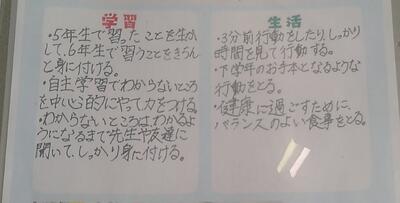 学習
・5年生で習ったことを生か
して、6年生で習うことをきちん
と身に付ける。
・自主学習でわからないところ
を中心的にやって力をつける。
・わからないところは、わかるよ
うになるまで先生や友達に
聞いて、しっかり身に付ける。
生活
・3分前行動をしたり、しっかり
時間を見て行動する。
・下学年のお手本となるような
行動をとる。
・健康に過ごすために、
バランスのよい食事をとる。